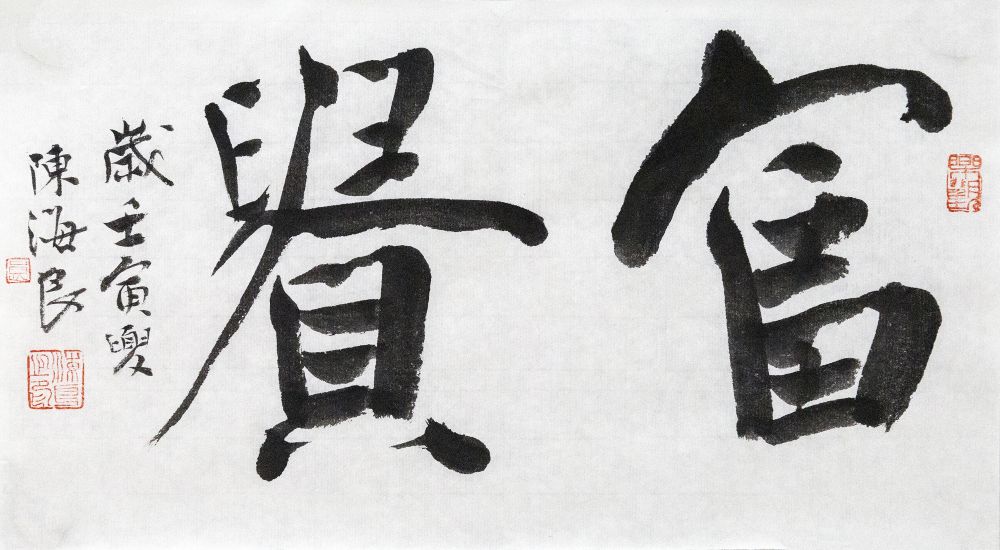 富貴
歲壬寅夏
陳海良